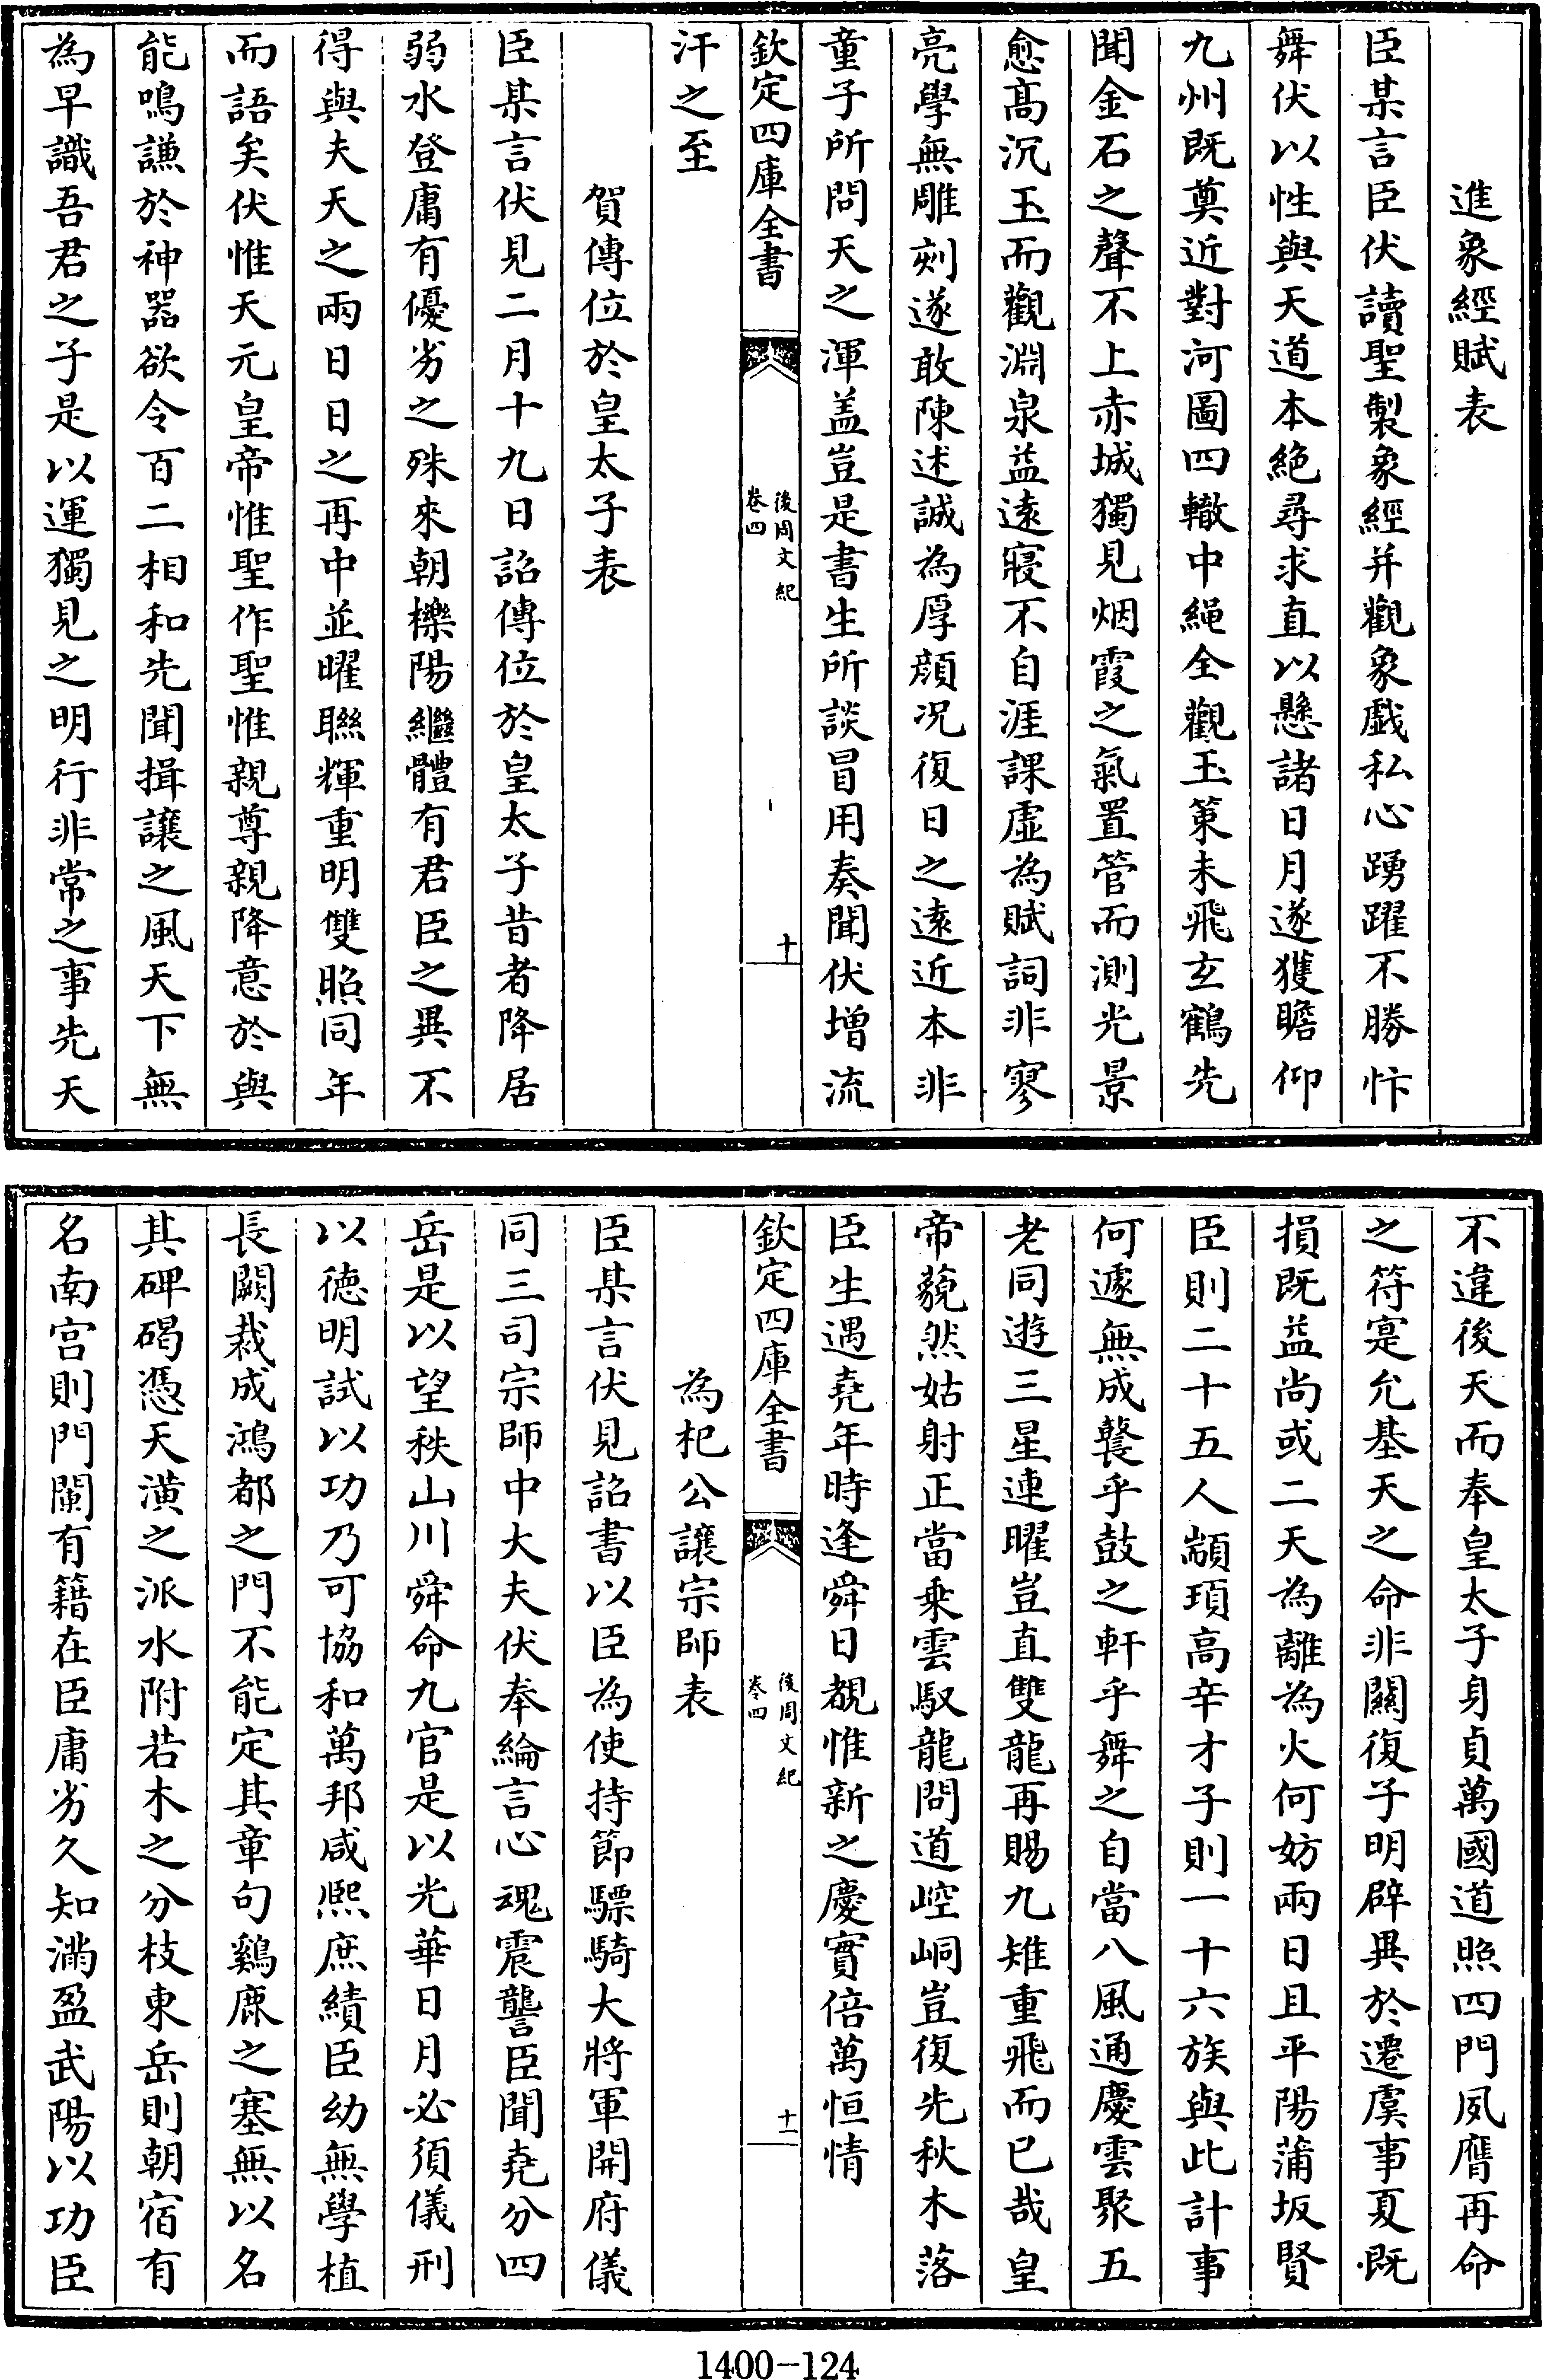 進象經賦表
臣某言臣伏讀聖製象經并觀象戯私心踴躍不勝忭
舞伏以性與天道本絶尋求直以懸諸日月遂獲瞻仰
九州既奠近對河圖四轍中繩全觀玉策未飛玄鶴先
聞金石之聲不上赤城獨見烟霞之氣置管而測光景
愈高沉玉而觀淵泉益遠寢不自涯課虚為賦詞非寥
亮學無雕刻遂敢陳述誠為厚顔况復日之遠近本非
童子所問天之渾盖豈是書生所談冒用奏聞伏增流
欽定四庫全書
後周文紀
卷四
十
汗之至
賀傳位於皇太子表
臣某言伏見二月十九日詔傳位於皇太子昔者降居
弱水登庸有優劣之殊來朝櫟陽繼體有君臣之異不
得與夫天之兩日日之再中並曜聯輝重明雙照同年
而語矣伏惟天元皇帝惟聖作聖惟親尊親降意於與
能鳴謙於神器欲令百二相和先聞揖讓之風天下無
為早識吾君之子是以運獨見之明行非常之事先天
不違後天而奉皇太子身貞萬國道照四門夙膺再命
之符寔允基天之命非關復子明辟異於遷虞事夏既
損既益尚或二天為離為火何妨兩日且平陽蒲坂賢
臣則二十五人顓頊高辛才子則一十六族與此計事
何遽無成襲乎鼓之軒乎舞之自當八風通慶雲聚五
老同遊三星連曜豈直雙龍再賜九雉重飛而已哉皇
帝藐然姑射正當乘雲馭龍問道崆峒豈復先秋木落
臣生遇堯年時逢舜日覩惟新之慶實倍萬恒情
欽定四庫全書
後周文紀
卷四
十一
為杞公讓宗師表
臣某言伏見詔書以臣為使持節驃騎大將軍開府儀
同三司宗師中大夫伏奉綸言心魂震讋臣聞堯分四
岳是以望秩山川舜命九官是以光華日月必須儀刑
以徳明試以功乃可協和萬邦咸熈庶績臣幼無學植
長闕裁成鴻都之門不能定其章句鷄鹿之塞無以名
其碑碣憑天潢之派水附若木之分枝東岳則朝宿有
名南宫則門闌有籍在臣庸劣久知滿盈武陽以功臣
1400-124